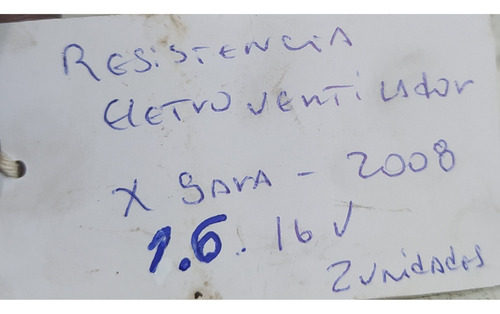 RESISTENCIA
ELETRO VENTILADOR
X SARA - 2008
1.6. 16 V
2 UNIDADES